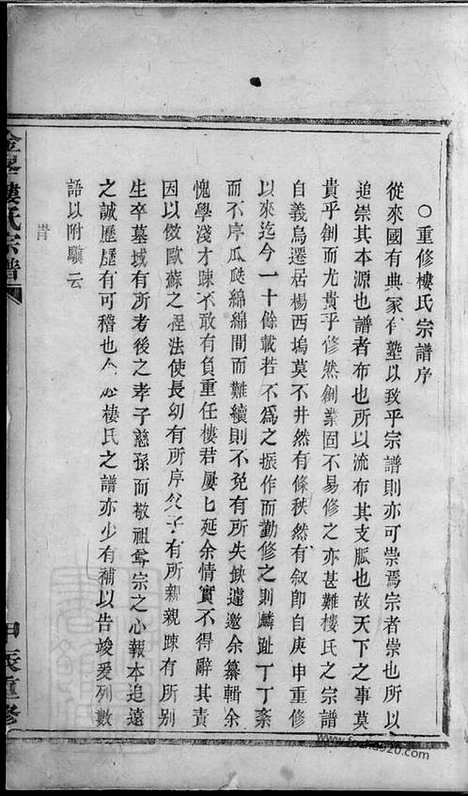 〇重修樓氏宗譜序
從來國有典家有塾以致乎宗譜則亦可崇焉宗者崇也所以
追崇其本源也譜者布也所以流布其支脈也故天下之事莫
貴乎創而尤貴乎修然創業固不易修之亦甚難樓氏之宗譜
自義烏遷居楊西塢莫不井然有條秩然有叙卽自庚申重修
以來迄今一十餘載若不爲之振作而勤修之則麟趾丁丁紊
而不序瓜瓞綿綿間而難續則不免有所失缺遽邀余纂輯余
愧學淺才踈不敢有負重任樓君屢匕延余情實不得辭其責
因以倣歐蘇之程法使長幼有所序父子有所親親踈有所别
生卒墓域有所考後之孝子慈孫而敬祖尊宗之心報本追遠
之誠歷歷有可稽也 樓氏之譜亦少有補以告竣爰列數
語以附驥云
旹
樓氏宗譜
甲辰重修